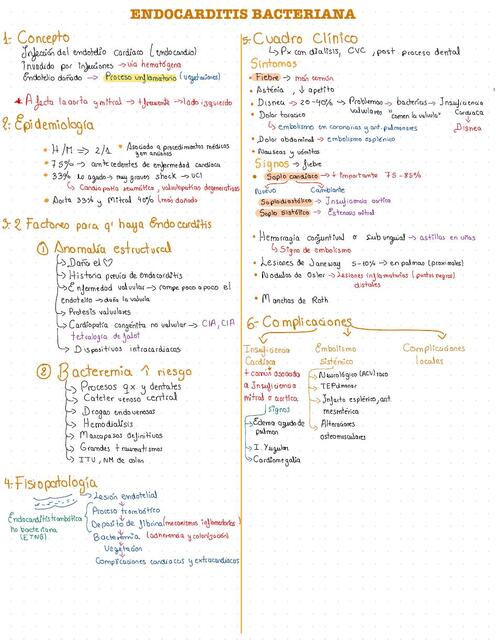 ENDOCARDITIS BACTERIANA
1. Concepto
Infección del endotelio cardiaco (endocardio)
Invadido por infecciones → vía hematógena
Endotelio dañado → Proceso inflamatorio (vegetaciones)
* Afecta la aorta y mitral → + frecuente → lado izquierdo
2. Epidemiología
• H/M => 2/1
• Asociado a procedimientos médicos
• 75% → antecedentes de enfermedad cardiaca
• 33% lo agudo → muy graves shock → UCI
↳ Cardiopatía reumática, valvulopatías degenerativas
• Aorta 33% y Mitral 40% (más dañado)
3. 2 Factores para q' haya Endocarditis
① Anomalía estructural
Daño el ♡
Historia previa de endocarditis
Enfermedad valvular → rompe poco a poco el
endotelio → daña la valvula
Protesis valvulares
Cardiopatía congénita no valvular → CIA, CIA
tetralogia de falot
Dispositivos intracardiacos
② Bacteremia ↑ riesgo
Procesos qx y dentales
Catéter venoso central
Drogas endovenosas
Hemodialisis
Marcapasos definitivos
Grandes traumatismos
ITU, NM de colon
4. Fisiopatología
Lesión endotelial
Proceso trombótico
Deposito de fibrina (mecanismos inflamatorios)
Bacteremia (adherencia y colonización)
Vegetación
Complicaciones cardiacas y extracardiacas
Endocarditis trombótica
no bacteriana
(ETNB)
5. Cuadro Clínico
↳ Px con dialisis, CVC, post proceso dental
Síntomas
• Fiebre → mas común
• Astenia, ↓ apetito
• Disnea → 20-40% → Problemas valvulares → bacterias "comen la valvula" → Insuficiencia Cardiaca
Disnea
• Dolor toracico
↳ embolismo en coronarias y art. pulmonares
• Dolor abdominal → embolismo esplénico
• Nauseas y vómitos
Signos → fiebre
• Soplo cardiaco → + importante 75-85%
Nuevo Cambiante
Soplo diastólico → Insuficiencia aortica
Soplo sistólico → Estenosis mitral
• Hemorragia conjuntival o subungual → astillas en uñas
↳ Signo de embolismo
• Lesiones de Janeway 5-10% → en palmas (proximales)
• Nodulos de Osler → Lesiones inflamatorias (puntos negros)
distales
• Manchas de Roth
6. Complicaciones
Insuficiencia
Cardiaca
+ común asociada
a Insuficiencia
mitral o aortica
signos
Edema agudo de
pulmon
I. Yugular
Cardiomegalia
Embolismo
Sistémico
Neurológico (ACV)
TEPulmonar
Infarto esplénico, art.
mesentérica
Alteraciones
osteomusculares
Complicaciones
locales